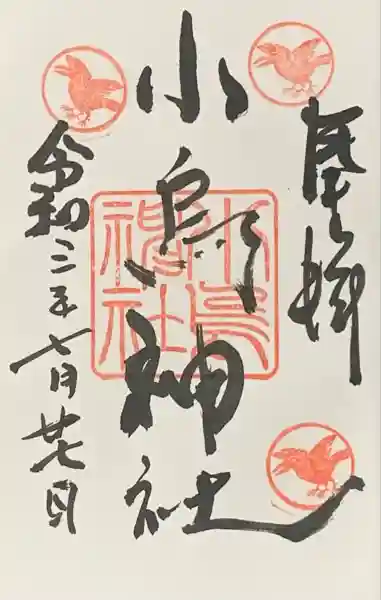 小烏神社
令和三年七月廿七日
小烏
神社